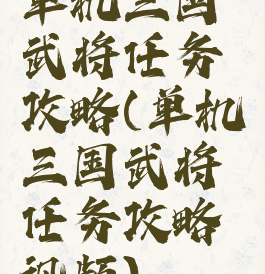 单机三国
武将任务
攻略(单机
三国武将
任务攻略
视频)